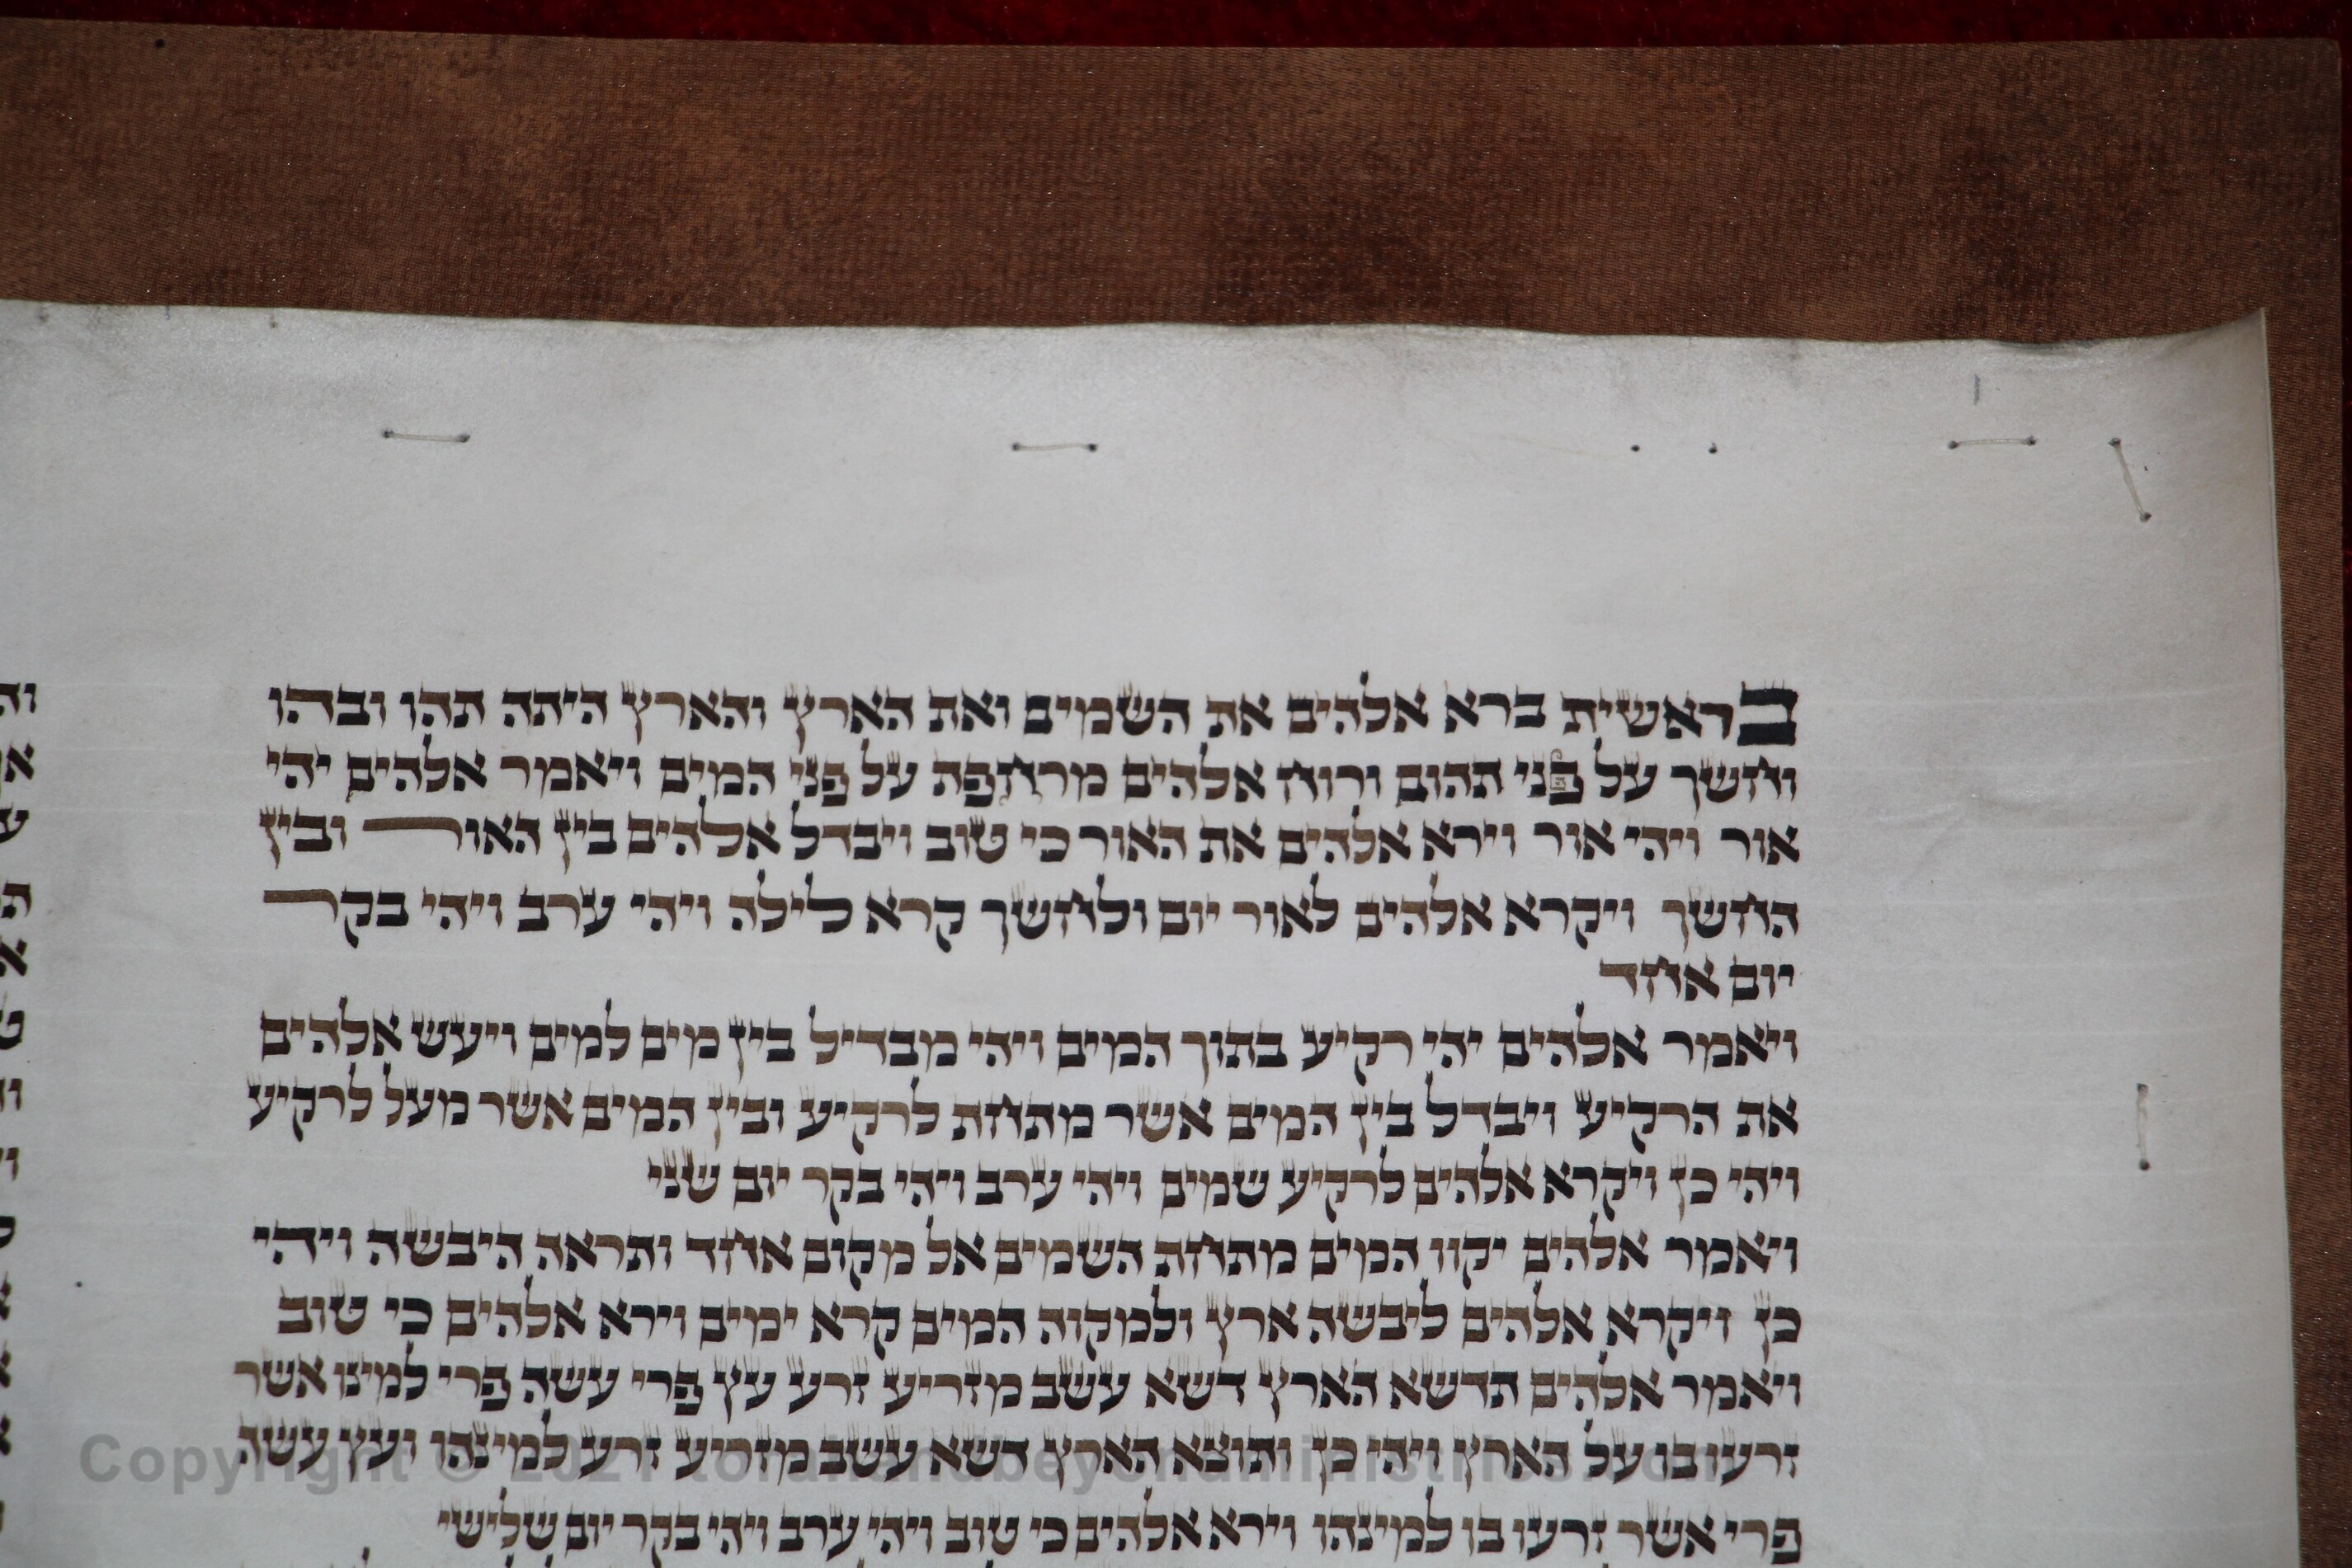 בראשית ברא אלהים את השמים ואת הארץ והארץ היתה תהו ובהו
וחשך על פני תהום ורוח אלהים מרחפת על פני המים ויאמר אלהים יהי
אור ויהי אור וירא אלהים את האור כי טוב ויבדל אלהים בין האור ובין
החשך ויקרא אלהים לאור יום ולחשך קרא לילה ויהי ערב ויהי בקר
יום אחד
ויאמר אלהים יהי רקיע בתוך המים ויהי מבדיל בין מים למים ויעש אלהים
את הרקיע ויבדל בין המים אשר מתחת לרקיע ובין המים אשר מעל לרקיע
ויהי כן ויקרא אלהים לרקיע שמים ויהי ערב ויהי בקר יום שני
ויאמר אלהים יקוו המים מתחת השמים אל מקום אחד ותראה היבשה ויהי
כן ויקרא אלהים ליבשה ארץ ולמקוה המים קרא ימים וירא אלהים כי טוב
ויאמר אלהים תדשא הארץ דשא עשב מזריע זרע עץ פרי עשה פרי למינו אשר
זרעו בו על הארץ ויהי כן ותוצא הארץ דשא עשב מזריע זרע למינהו ועץ עשה
פרי אשר זרעו בו למינהו וירא אלהים כי טוב ויהי ערב ויהי בקר יום שלישי
Copyright © 2021